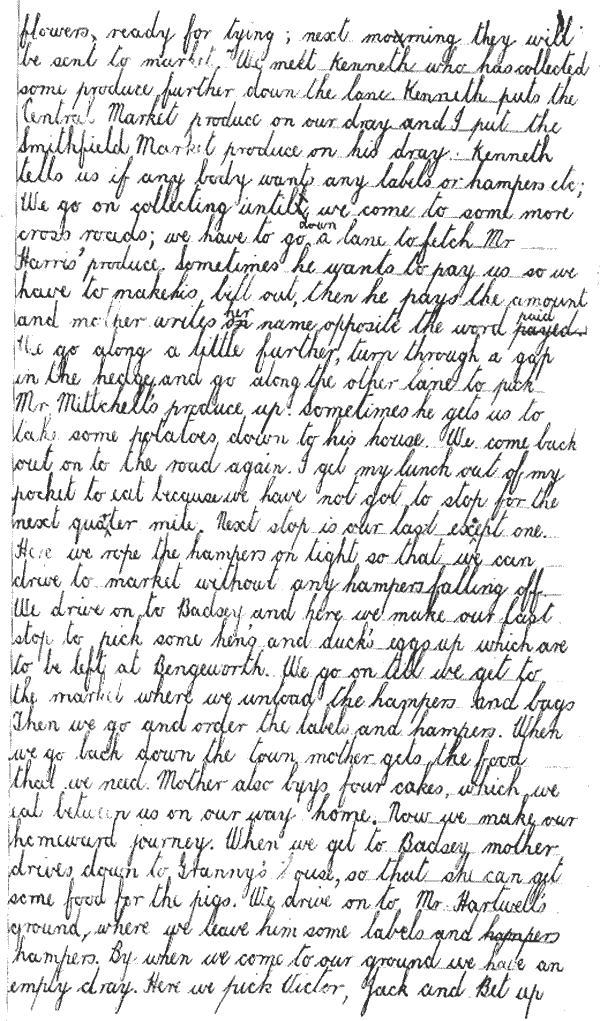 flowers, ready for tying; next mourning they will
be sent to market. We meet Kenneth who has collected
some produce further down the lane. Kenneth puts the
Central Market produce on our dray and I put the
Smithfield Market produce on his dray. Kenneth
tells us if any body wants any labels or hampers etc;
We go on collecting untill we come to some more
cross roads; we have to go down a lane to fetch Mr
Harris' produce. Sometimes he wants to pay us so we
have to make his bill out, then he pays the amount
and mother writes her name opposite the word paid payed.
We go along a little further, turn through a gap
in the hedge and go along the other lane to pick
Mr Mittchell's produce up. Sometimes he gets us to
take some potatoes down to his house. We come back
out on to the road again. I get my lunch out of my
pocket to eat because we have not got to stop for the
next quater mile. Next stop is our last except one.
Here we rope the hampers on tight so that we can
drive to market without any hampers falling off.
We drive on to Badsey and here we make our last
stop to pick some hen's and duck's eggs up which are
to be left at Bengeworth. We go on till we get to
the market where we unload the hampers and bags
Then we go and order the labels and hampers. When
we go back down the town mother gets the food
that we need. Mother also buys four cakes, which we
eat between us on our way home. Now we make our
homeward journey. When we get to Badsey mother
drives down to Granny's house, so that she can get
some food for the pigs. We drive on to Mr Hartwell's
ground, where we leave him some labels and hampers
hampers. By when we come to our ground we have an
empty dray. Here we pick Victor, Jack and Bet up